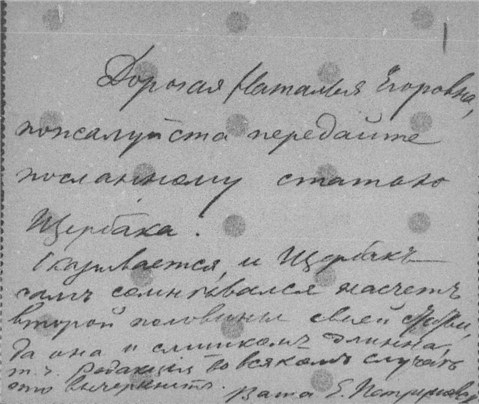 Дорогая Наталья Егоровна,
пожалуйста передайте
посланному статью
Щербака.
Оказывается, и Щербакъ
самъ сомнѣвался насчетъ
второй половины своей
да она и слишкомъ длинна,
т.ч. редакція во всякомъ случаѣ
это вычеркнетъ.
Ваша Е.